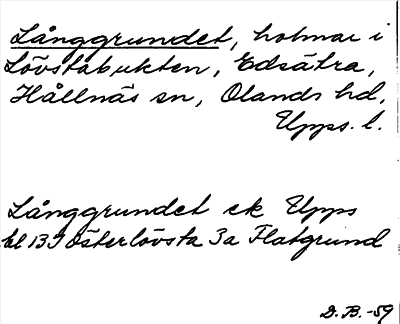 Långgrundet, holmar i
Lövstabukten, Edsätra,
Hållnäs sn, Olands hd,
Upps. l.
Långgrundet ek Upps
bl 139 Österlövsta 3a Flatgrund
D. B. -59